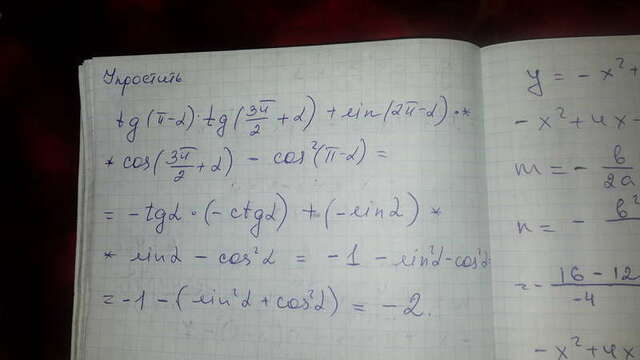 Упростить
tg(π-α)·tg(3π/2+α)+sin(2π-α)·*
*cos(3π/2+α) - cos²(π-α) =
= -tgα·(-ctgα)+(-sinα)*
* sinα - cos²α = -1 - sin²α-cos²α
= -1 - (sin²α + cos²α) = -2.
y = -x²+
-x²+4x-
m = - b/2a
n = - b²
= - 16-12/-4
-x²+4x